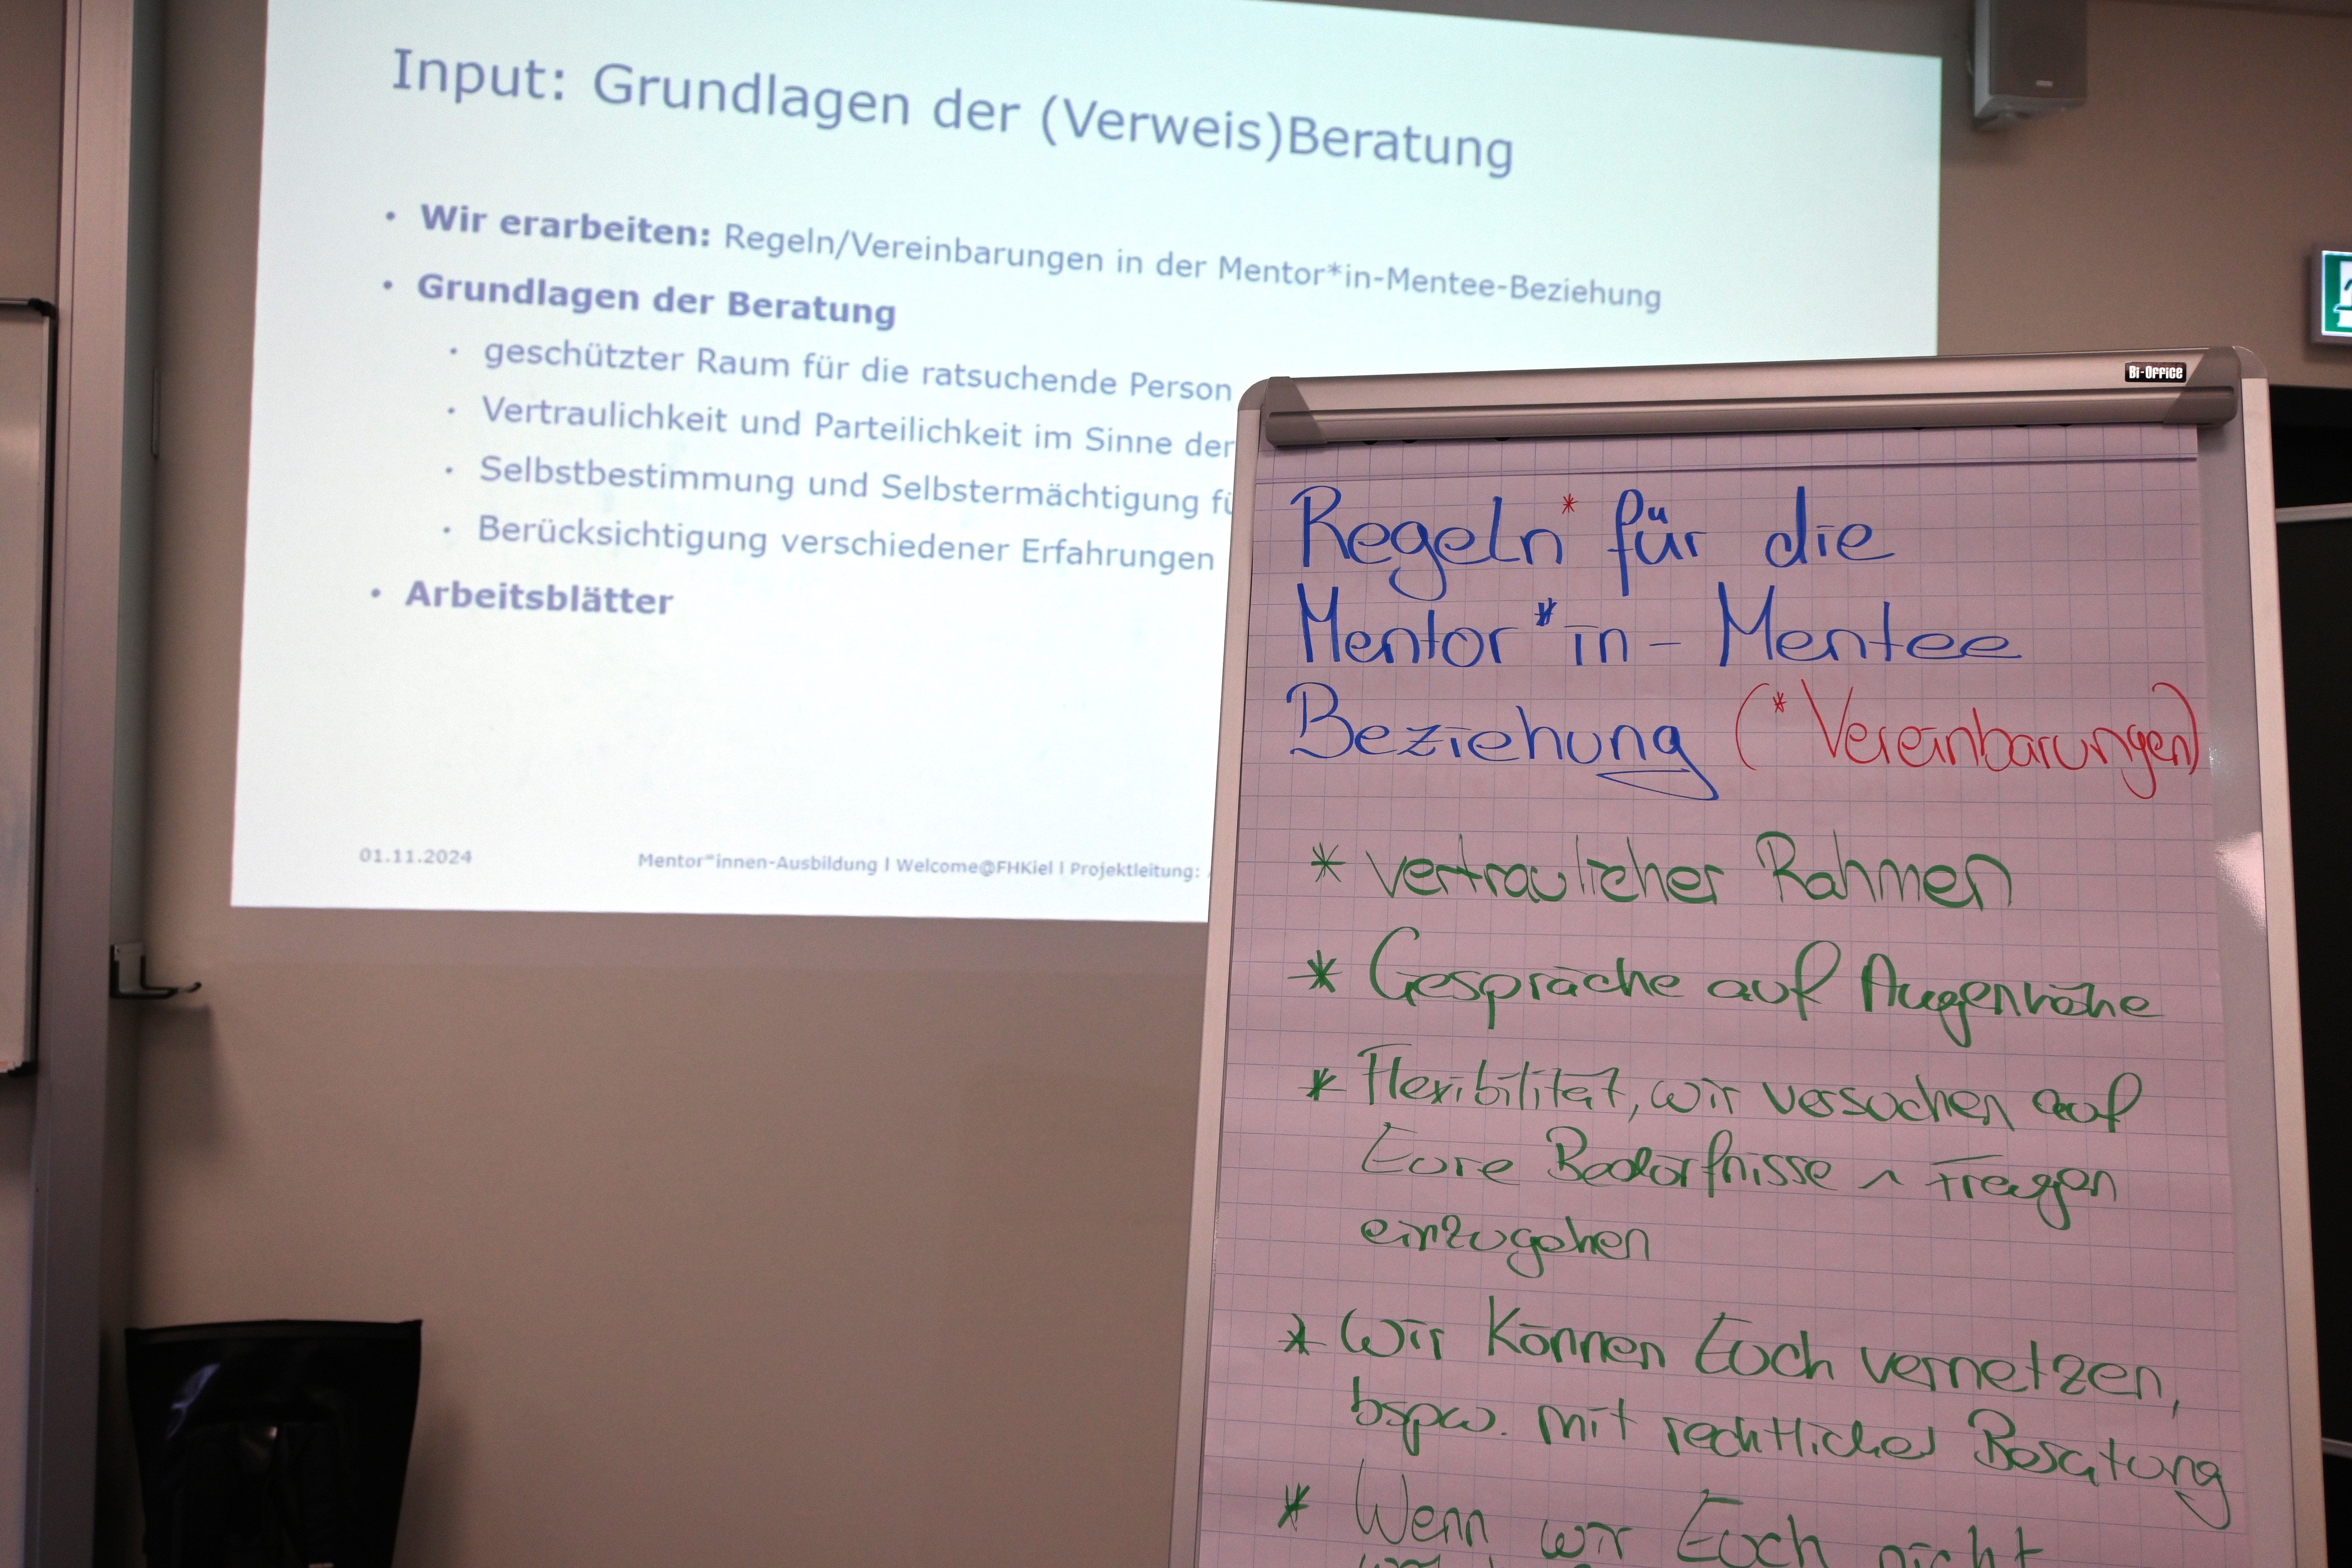 Input: Grundlagen der (Verweis)Beratung
• Wir erarbeiten: Regeln/Vereinbarungen in der Mentor*in-Mentee-Beziehung
• Grundlagen der Beratung
• geschützter Raum für die ratsuchende Person
• Vertraulichkeit und Parteilichkeit im Sinne der
• Selbstbestimmung und Selbstermächtigung fü
• Berücksichtigung verschiedener Erfahrungen
• Arbeitsblätter
01.11.2024
Mentor*innen-Ausbildung I Welcome@FHKiel I Projektleitung:
Bi-Office
Regeln* für die
Mentor*in-Mentee
Beziehung (*Vereinbarungen)
* vertraulicher Rahmen
* Gespräche auf Augenhöhe
* Flexibilität, wir versuchen auf
Eure Bedürfnisse ^ Fragen
einzugehen
* Wir können Euch vernetzen,
bspw. mit rechtlicher Beratung
* Wenn wir Euch nicht